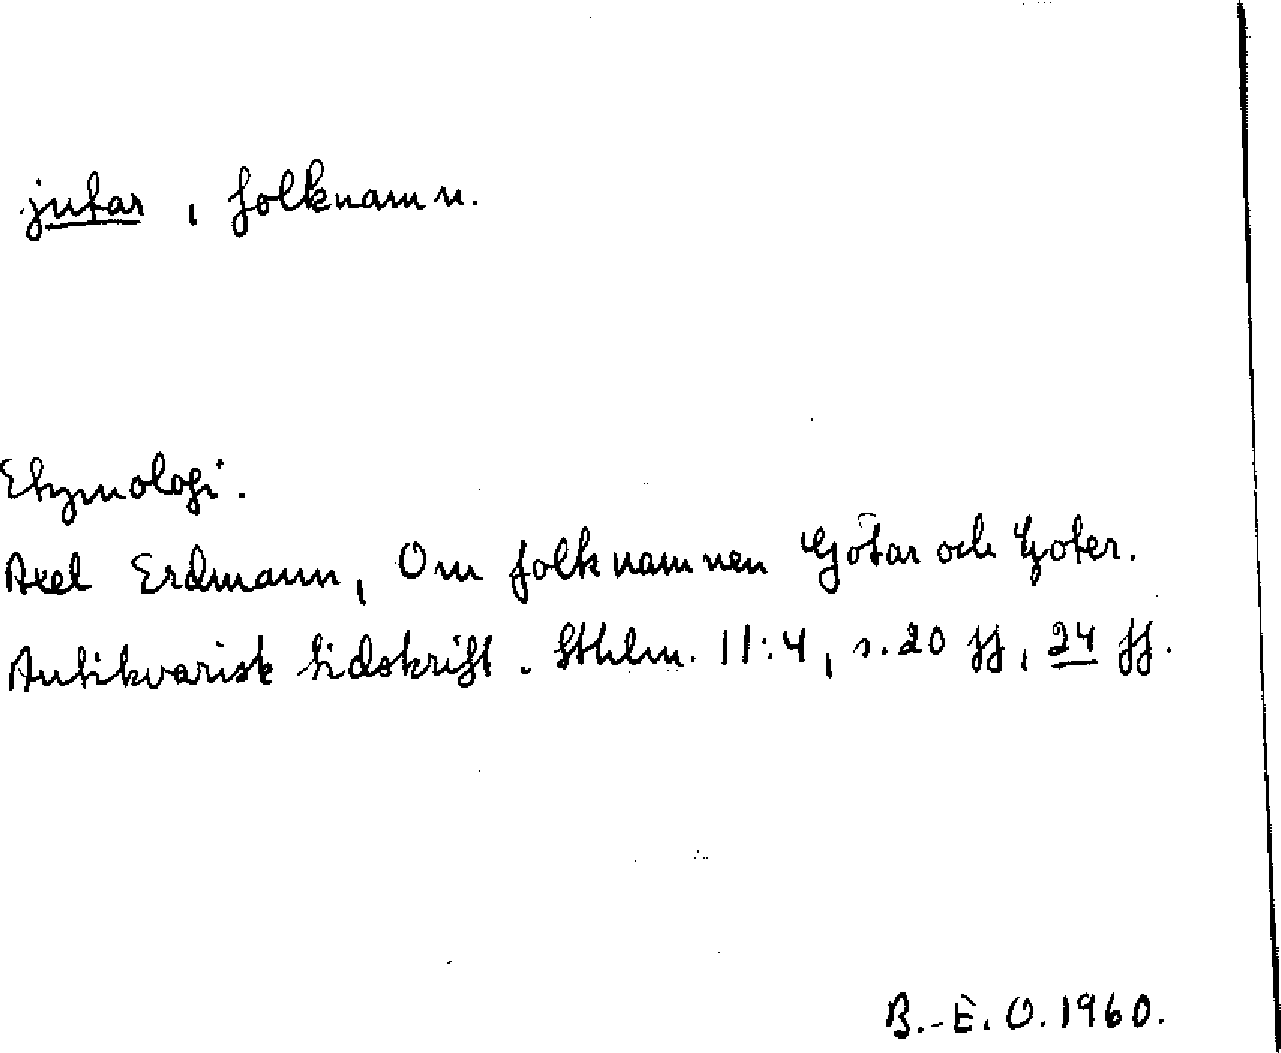 jutar, folknamn.
Etymologi.
Axel Erdmann, Om folknamnen Götar och Goter.
Antikvarisk tidskrift. Sthlm. 11:4, s. 20 ff, 24 ff.
B.-E. O. 1960.